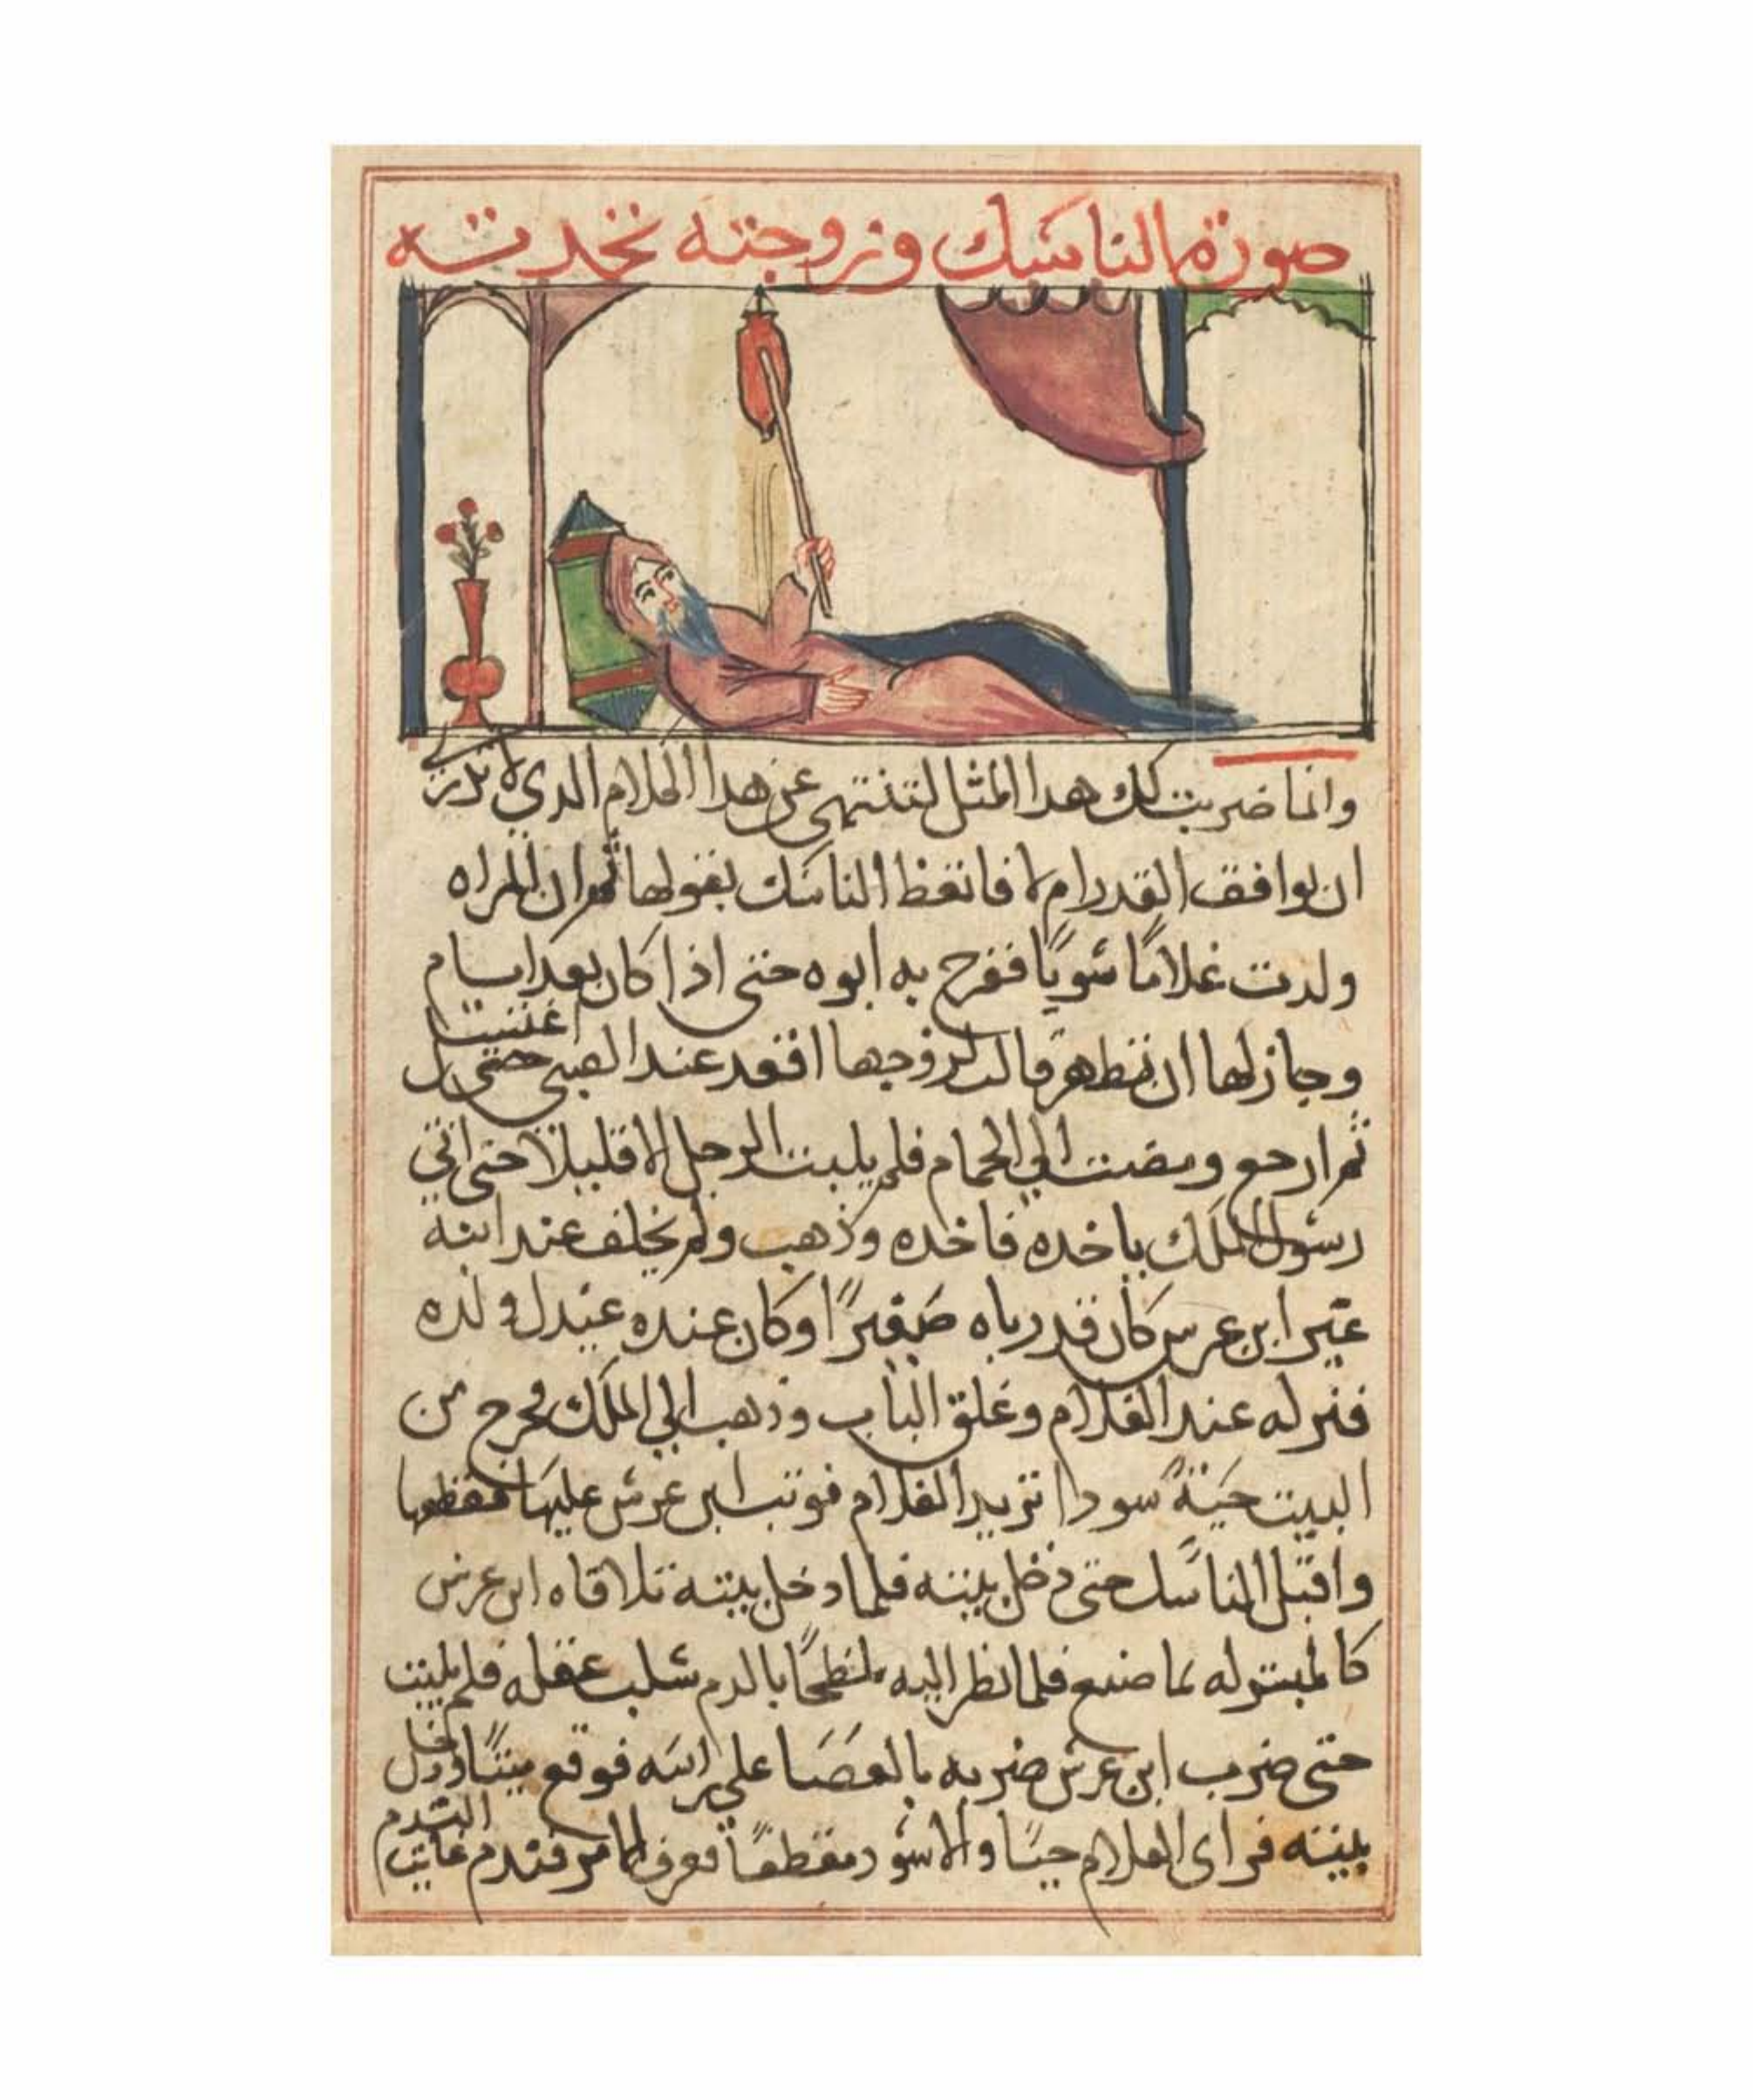 صورة الناسك وزوجته تحدثه
وانما ضربت لك هدا المثل لتنتهي عن هدا الكلام الدي لا تدري
ان يوافق القدر ام لا فاتعظ الناسك بقولها ثم ان المراه
ولدت غلامًا سويًا ففرح به ابوه حتى اذا كان بعد ايام
وجاز لها ان تتطهر قالت لزوجها اقعد عند الصبي حتى اغتسل
ثم ارجع ومضت الي الحمام فلم يلبث الرجل الا قليلًا حتى اتي
رسول الملك ياخده فاخده وذهب ولم يخلف عند ابنه
غير ابن عرس كان قد رباه صغيرًا وكان عنده عديل ولده
فتركه عند الغلام وغلق الباب وذهب الي الملك فخرج من
البيت حَيّةً سودا تريد الغلام فوثب ابن عرس عليها فقطعها
واقبل الناسك حتى دخل بيته فلما دخل بيته تلاقاه ابن عرس
كالمبشر له بما صنع فلما نظر اليه ملطخًا بالدم سلب عقله فلم يلبث
حتى ضرب ابن عرس ضربه بالعَصَا علي راسه فوقع ميتًا ودخل
بيته فراى الغلام حيًا والاسود مقطعًا فعرف الامر فندم غايت الندم